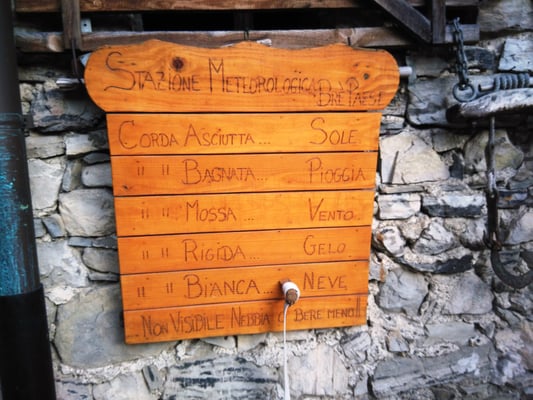 STAZIONE METEOROLOGICA DRE PAESE
CORDA ASCIUTTA... SOLE
" " BAGNATA... PIOGGIA
" " MOSSA... VENTO
" " RIGIDA... GELO
" " BIANCA... NEVE
NON VISIBILE NEBBIA O BERE MENO!!